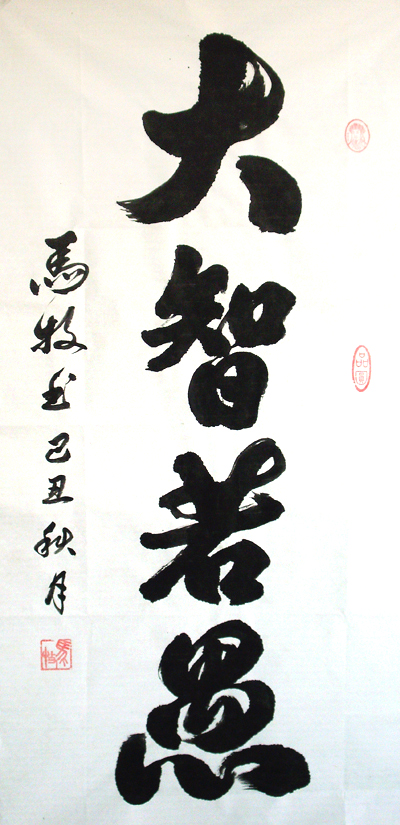 大智若愚
馬牧书己丑秋月